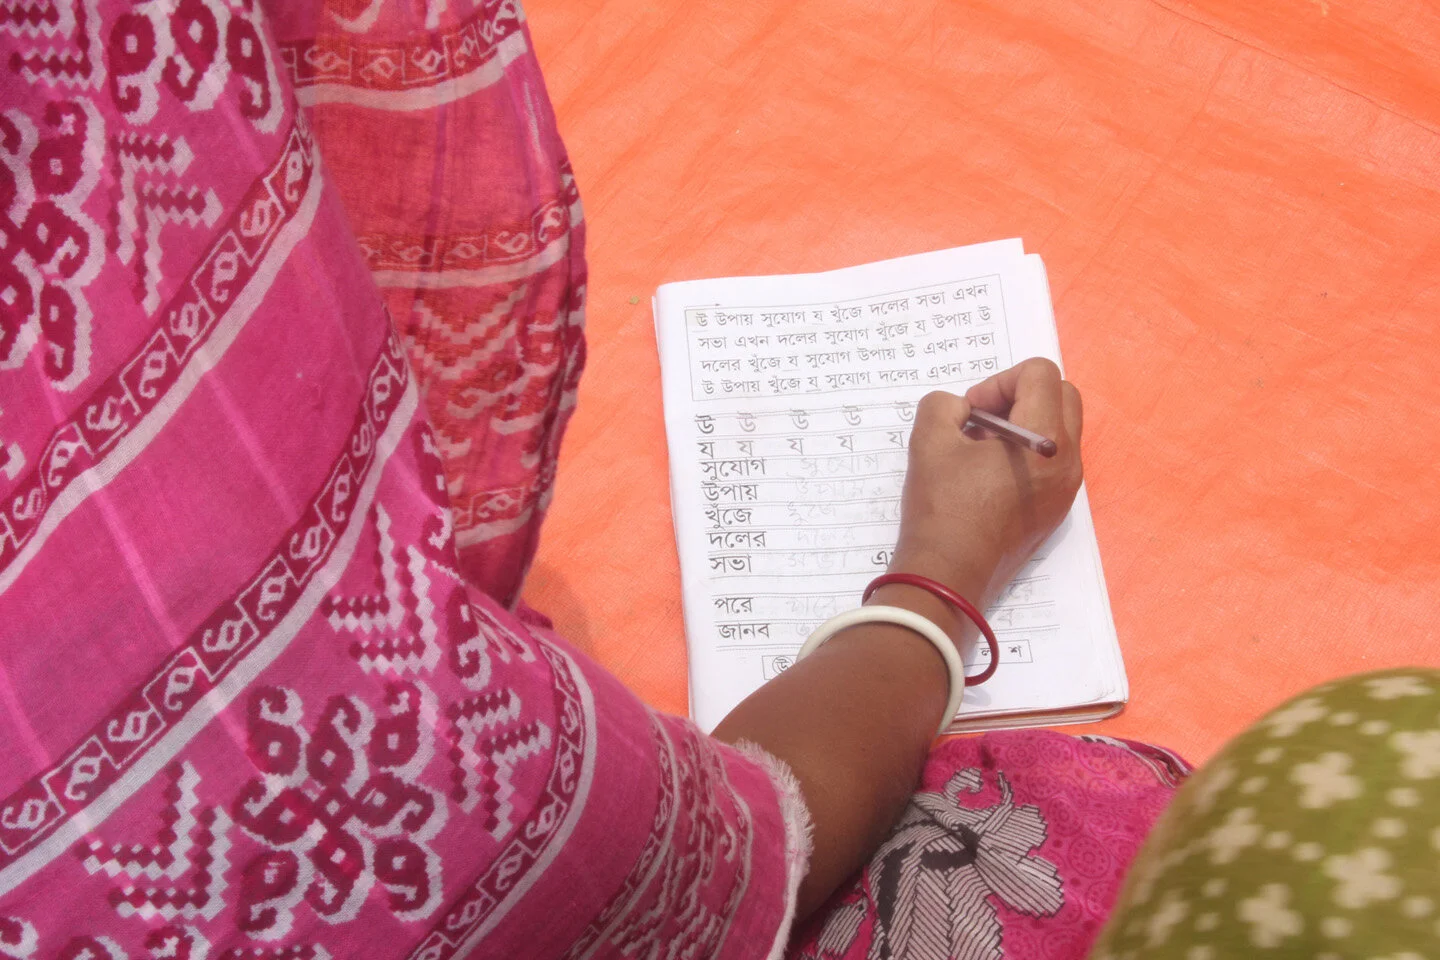 উ উপায় সুযোগ য খুঁজে দলের সভা এখন
সভা এখন দলের সুযোগ খুঁজে য উপায় উ
দলের খুঁজে য সুযোগ উপায় উ এখন সভা
উ উপায় খুঁজে য সুযোগ দলের এখন সভা
উ উ উ উ উ
য য য য য
সুযোগ সুযোগ
উপায় উপায়
খুঁজে খুজে
দলের দলের
সভা সভা
পরে পরে
জানব
উ ল শ